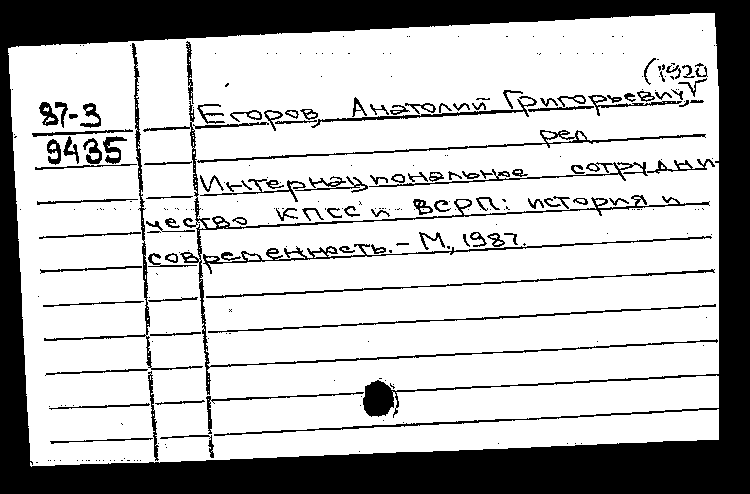 (1920
87-3
Егоров, Анатолий Григорьевич,
9435
ред.
Интернациональное сотрудни-
чество КПСС и ВСРП: история и
современность. – М., 1987.